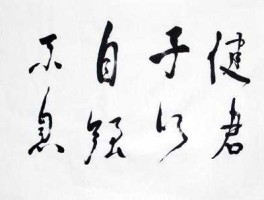 健君
子以
自强
不息